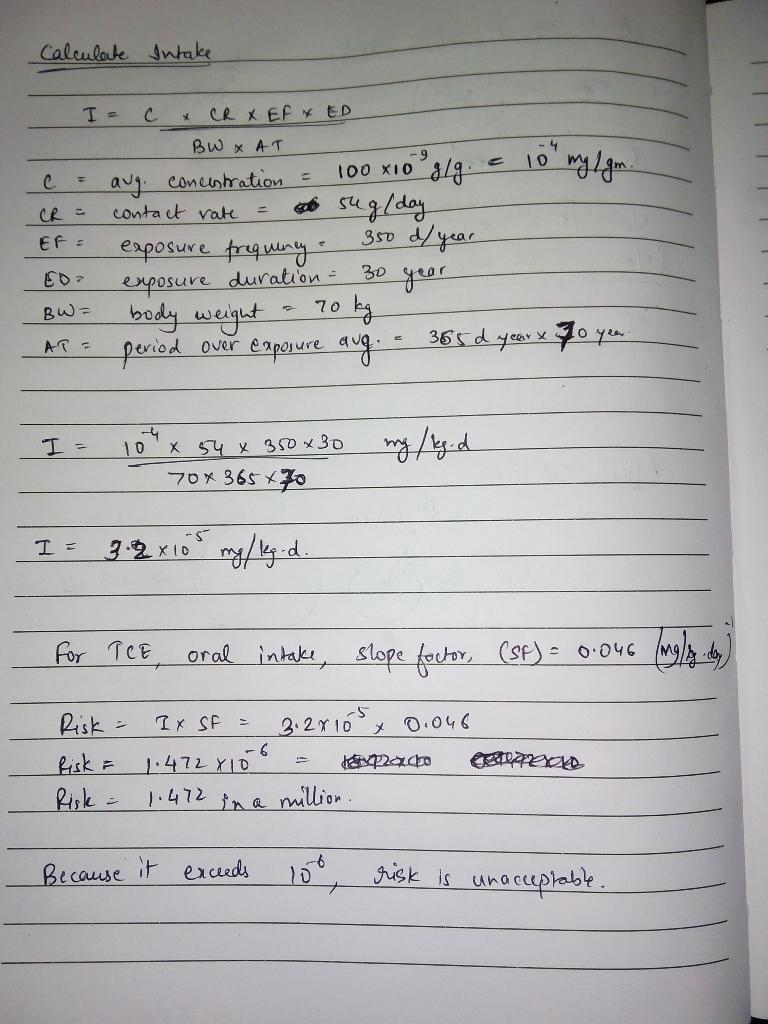 Calculate Intake
I = C x CR x EF x ED
BW x AT
C = avg. concentration = 100 x10⁻⁹ g/g. = 10⁻⁴ mg/gm.
CR = contact rate = 54g/day
EF = exposure frequency = 350 d/year
ED = exposure duration = 30 year
BW = body weight = 70 kg
AT = period over exposure avg. = 365 d year x 70 year.
I = 10⁻⁴ x 54 x 350 x 30 mg/kg.d
70 x 365 x 70
I = 3.2 x10⁻⁵ mg/kg.d.
For TCE, oral intake, slope factor, (SF) = 0.046 (mg/kg.day)⁻¹
Risk = I x SF = 3.2x10⁻⁵ x 0.046
Risk = 1.472 x10⁻⁶ =
Risk = 1.472 in a million.
Because it exceeds 10⁻⁶, risk is unacceptable.